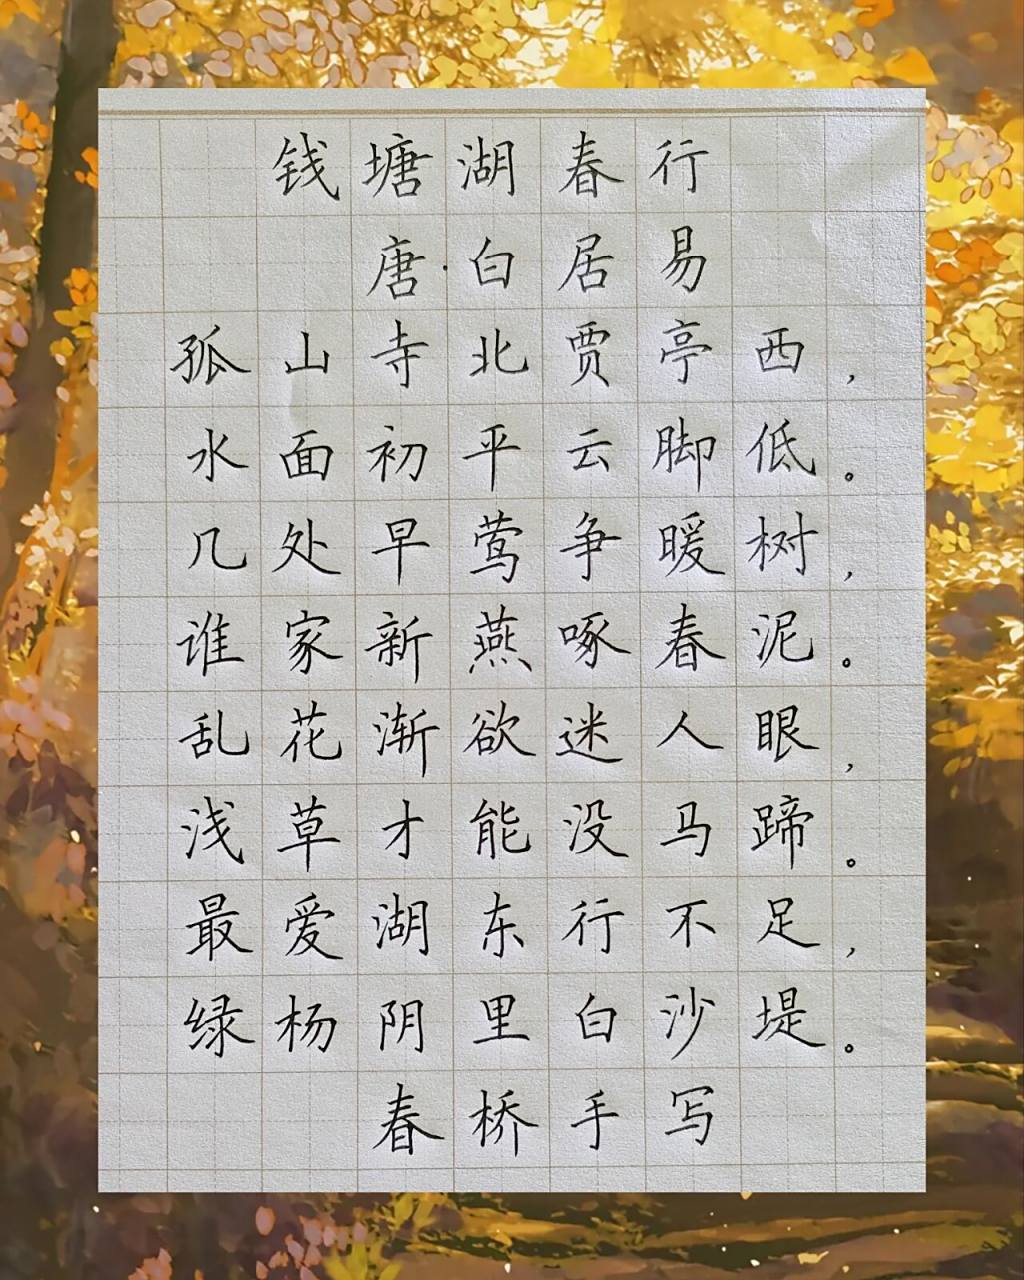 钱塘湖春行
唐·白居易
孤山寺北贾亭西，
水面初平云脚低。
几处早莺争暖树，
谁家新燕啄春泥。
乱花渐欲迷人眼，
浅草才能没马蹄。
最爱湖东行不足，
绿杨阴里白沙堤。
春桥手写